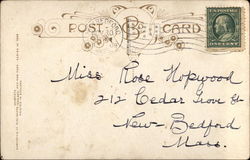 POST CARD
Miss Rose Hopwood
212 Cedar Grove St
New Bedford
Mass.
ONE CENT